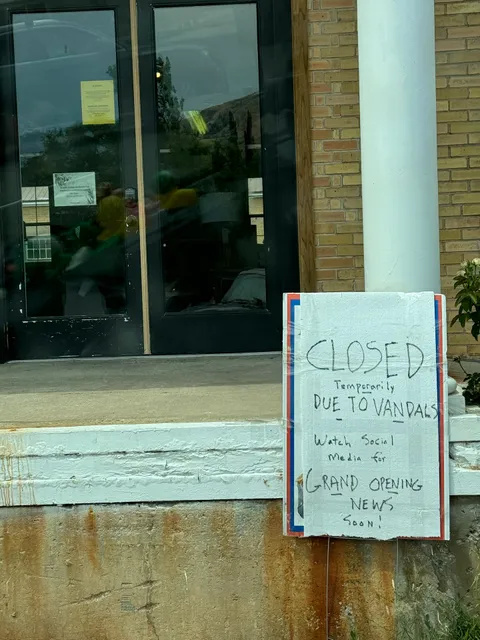 CLOSED
Temporarily
DUE TO VANDALS
Watch Social
Media for
GRAND OPENING
NEWS
SOON!